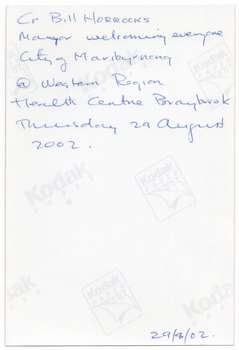 Cr Bill HORROCKS
Mayor welcoming everyone
City of Maribyrnong
@ Western Region
Health Centre Braybrook
Thursday 29 August
2002.
Kodak
Kodak
Kodak
Kodak
29/8/02.